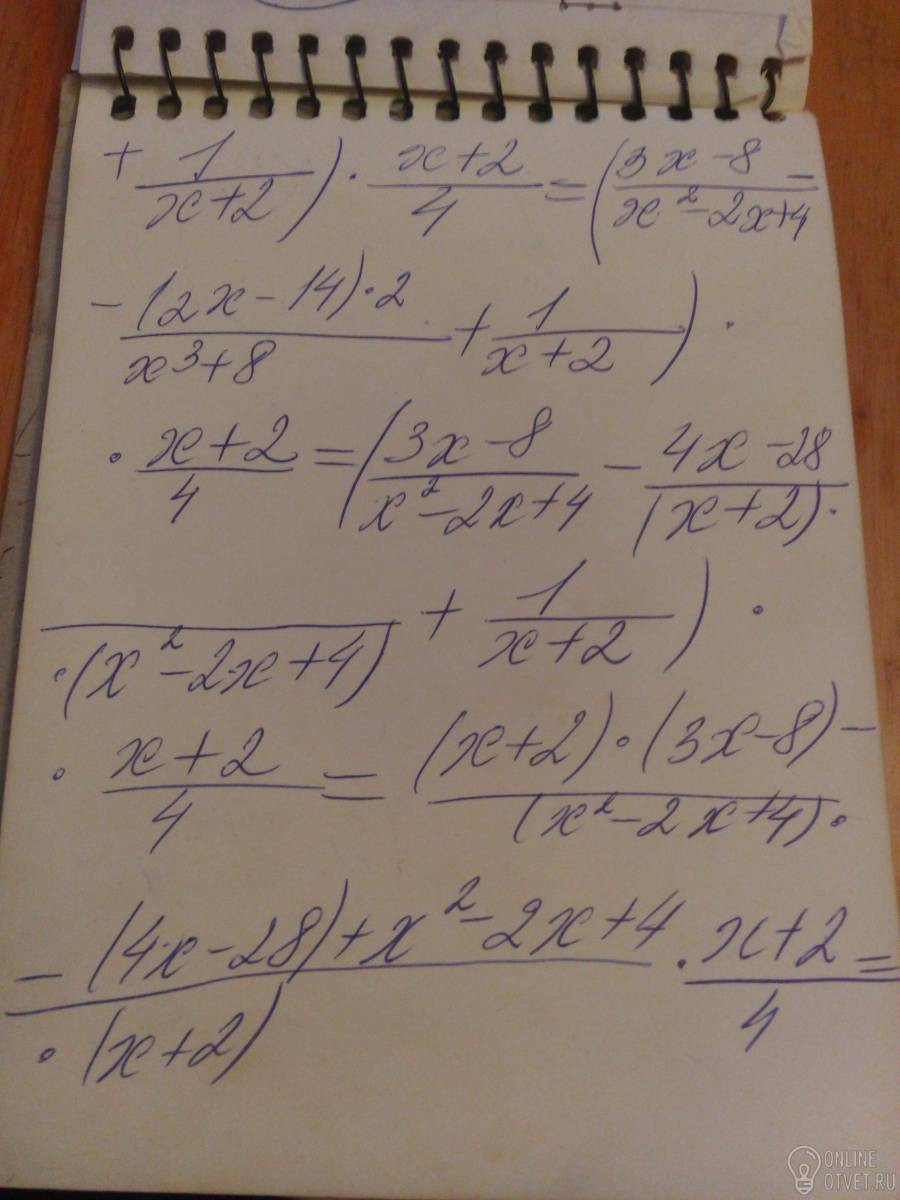 + 1/(x+2)) · (x+2)/4 = ((3x-8)/(x²-2x+4) -
- ((2x-14)·2)/(x³+8) + 1/(x+2)) ·
· (x+2)/4 = ((3x-8)/(x²-2x+4) - (4x-28)/((x+2)·
·(x²-2x+4)) + 1/(x+2)) ·
· (x+2)/4 = ((x+2)·(3x-8)-)/((x²-2x+4)·
(-(4x-28)+x²-2x+4)/(·(x+2)) · (x+2)/4 =
ONLINE
OTVET.RU